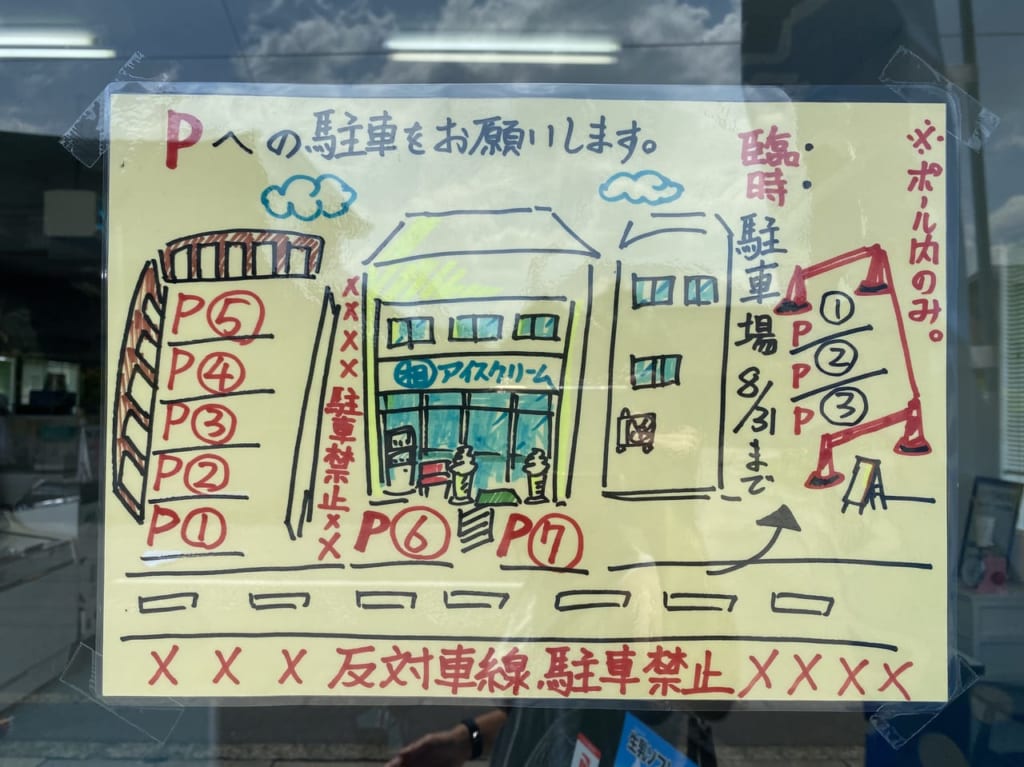 Pへの駐車をお願いします。
臨時
駐車場 8/31まで
※ポール内のみ。
P⑤
P④
P③
P②
P①
××××駐車禁止×××
アイスクリーム
P⑥
P⑦
P①
P②
P③
××× 反対車線駐車禁止××××